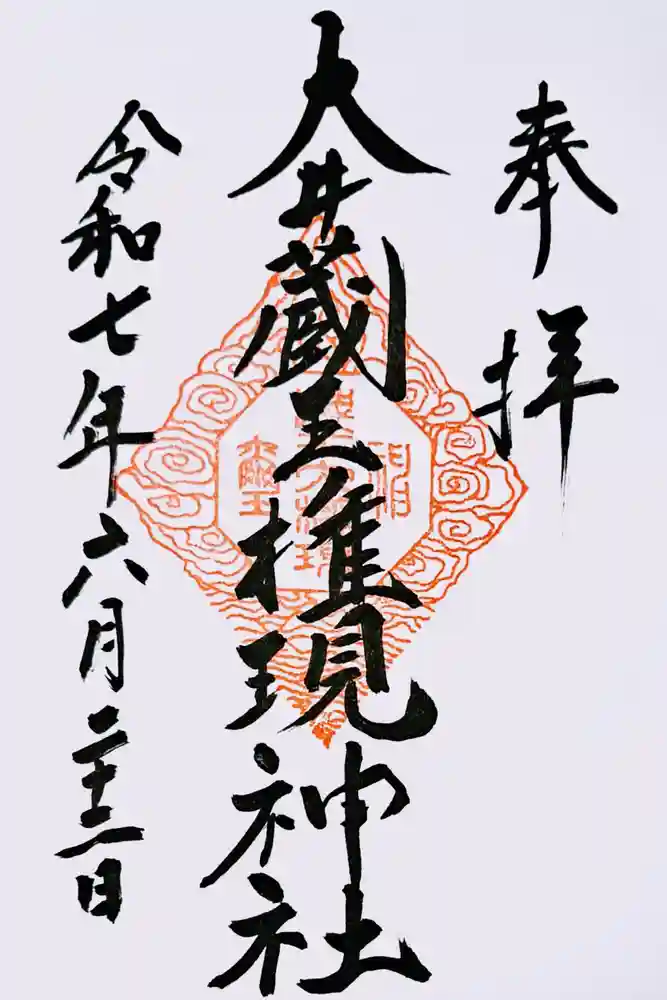 奉拝
大井蔵王権現神社
令和七年六月二十二日